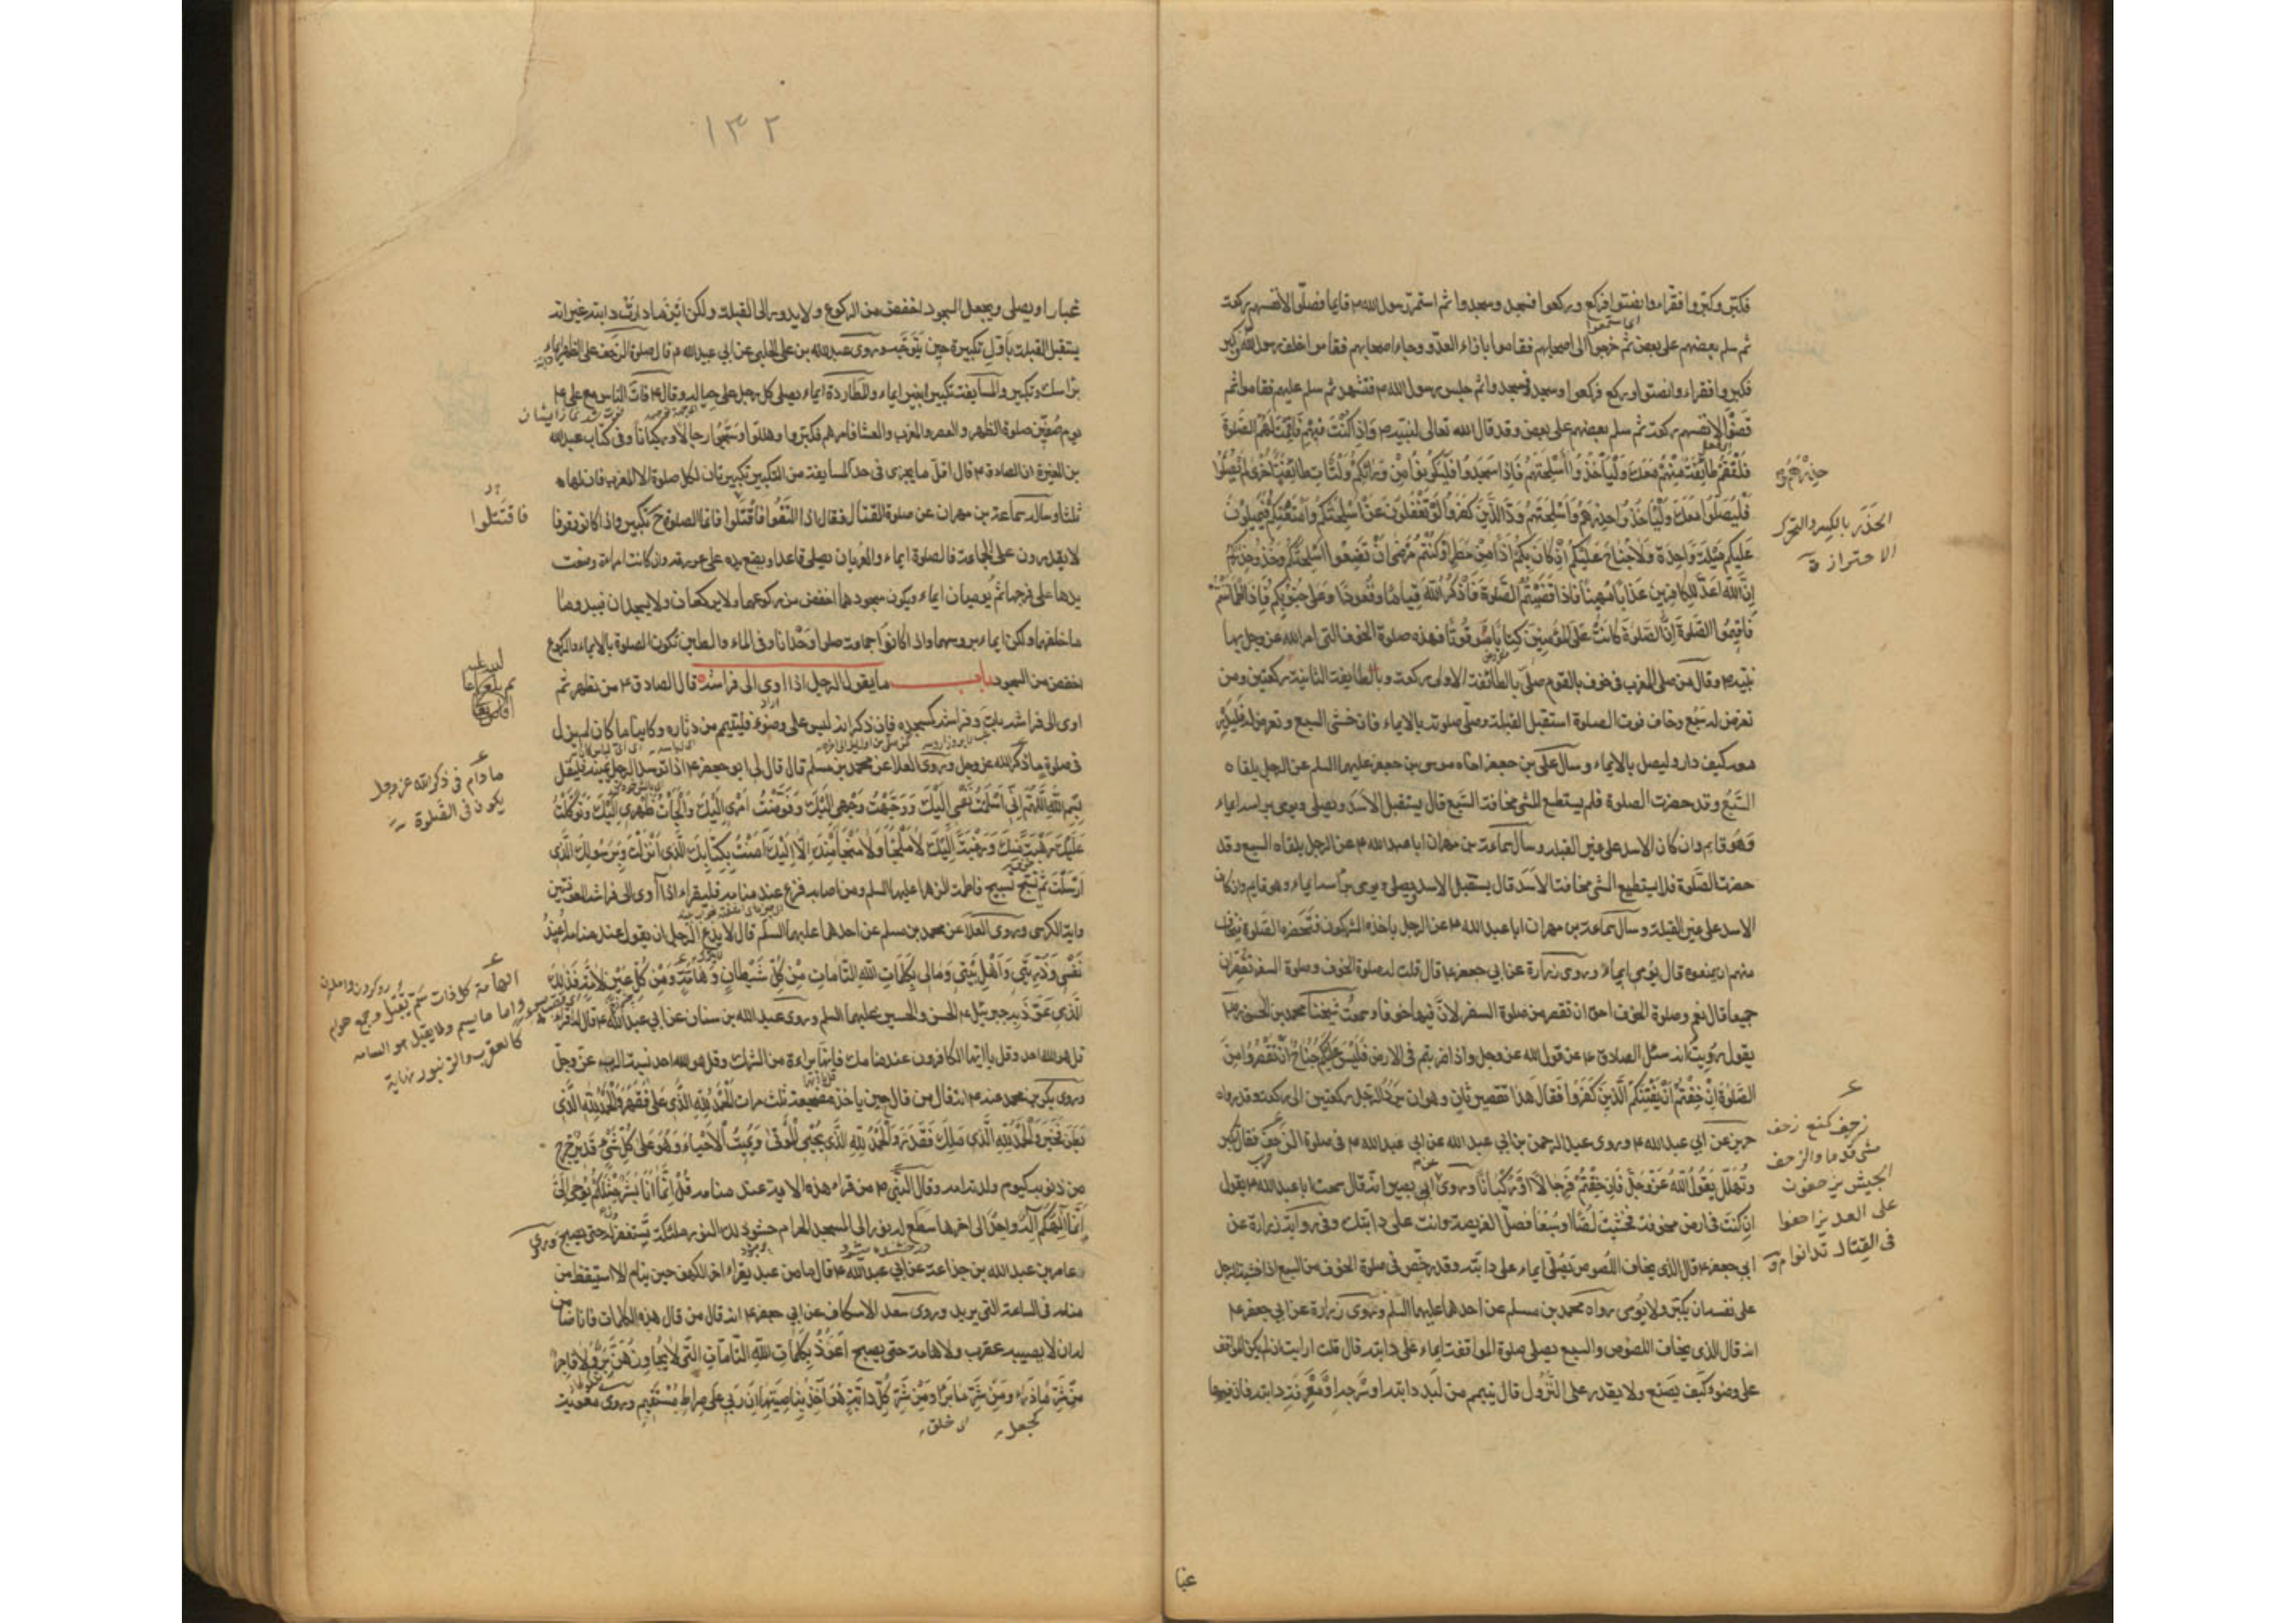 فكبّر وكبّروا فقراء وانصتوا فركع وركعوا فسجد وسجدوا ثم استمرّ رسول الله ص قايما فصلّوا لانفسهم ركعت
ثم سلم بعضهم على بعض ثم خرجوا الى اصحابهم فقاموا بازاء العدو وجاء اصحابهم فقاموا خلف رسول الله فكبر
فكبروا فقراء وانصتوا وركع فركعوا وسجد فسجدوا ثم جلس رسول الله ص فتشهد ثم سلم عليهم فقاموا ثم
قضوا لانفسهم ركعت ثم سلم بعضهم على بعض وقد قال الله تعالى لنبيه ص وَاِذا كُنْتَ فيهِمْ فَاَقَمْتَ لَهُمُ الصَّلوةَ
فَلْتَقُمْ طائِفَةٌ مِنْهُمْ مَعَكَ وَلْيَأْخُذُوا اَسْلِحَتَهُمْ فَاِذا سَجَدُوا فَلْيَكُونُوا مِنْ وَرائِكُمْ وَلْتَأْتِ طائِفَةٌ اُخْرى لَمْ يُصَلُّوا
فَلْيُصَلُّوا مَعَكَ وَلْيَأْخُذُوا حِذْرَهُمْ وَاَسْلِحَتَهُمْ وَدَّ الَّذينَ كَفَرُوا لَوْ تَغْفُلُونَ عَنْ اَسْلِحَتِكُمْ وَاَمْتِعَتِكُمْ فَيَميلُونَ
عَلَيْكُمْ مَيْلَةً واحِدَةً وَلا جُناحَ عَلَيْكُمْ اِنْ كانَ بِكُمْ اَذىً مِنْ مَطَرٍ اَوْ كُنْتُمْ مَرْضى اَنْ تَضَعُوا اَسْلِحَتَكُمْ وَخُذُوا حِذْرَكُمْ
اِنَّ اللهَ اَعَدَّ لِلْكافِرينَ عَذابًا مُهينًا فَاِذا قَضَيْتُمُ الصَّلوةَ فَاذْكُرُوا اللهَ قِيامًا وَقُعُودًا وَعَلى جُنُوبِكُمْ فَاِذَا اطْمَأْنَنْتُمْ
فَاَقيمُوا الصَّلوةَ اِنَّ الصَّلوةَ كانَتْ عَلَى الْمُؤْمِنينَ كِتابًا مَوْقُوتًا فهذه صلوة الخوف التى امر الله عز وجل بها
نبيه ص وقال من صلى المغرب فى خوف بالقوم صلى بالطائفت الاولى ركعت وبالطايفت الثانية ركعتين ومن
تعرض له سبع وخاف فوت الصلوة استقبل القبلة وصلى صلوته بالايماء فان خشى السبع وتعرض له فليدر
معه كيف دار وليصل بالايماء وسال على بن جعفر اخاه موسى بن جعفر عليهما السلم عن الرجل يلقاه
السَّبُع وقد حضرت الصلوة فلم يستطع المشى مخافة السَّبع قال يستقبل الاَسد ويصلى ويومى براسه ايماء
وَهُوَ قايم وان كان الاسد على غير القبله وسال سماعة بن مهران ابا عبد الله ع عن الرجل يلقاه السبع وقد
حضرت الصَّلوة فلا يستطيع المشى مخافة الاَسَد قال يستقبل الاسد ويصلى ويومى براسه ايماء وهو قايم وان كان
الاسد على غير القبلة وسال سماعة بن مهران ابا عبد الله ع عن الرجل ياخذه المشركون فتحضره الصَّلوة فيخاف
منهم ان يمنعوه قال يُومى ايماءً وروى زرارة عن ابى جعفر ع قال قلت له صلوة الخوف وصلوة السفر تقصران
جميعا قال نعم وصلوة الخوف احق ان تقصر من صلوة السفر لانَّ فيها خوفا وسمعتُ شيخنا محمد بن الحسن رض
يقول رويت انه سئل الصادق ع عن قول الله عز وجل واذا ضربتم فى الارض فَلَيْسَ عَلَيْكُمْ جُناحٌ اَنْ تَقْصُرُوا مِنَ
الصَّلوةِ اِنْ خِفْتُمْ اَنْ يَفْتِنَكُمُ الَّذينَ كَفَرُوا فَقالَ هذا تقصير ثانٍ وهو ان يردّ الرجل ركعتين الى ركعت وقد رواه
حريز عن ابى عبد الله ع وروى عبد الرحمن بن ابى عبد الله عن ابى عبد الله ع فى صلوة الزَّحْف فقال تكبر
وتُهلّل يَقُولُ اللهُ عَزَّ وَجَلَّ فَاِنْ خِفْتُمْ فَرِجالًا اَوْ رُكْبانًا وروى عن ابى بصير انه قال سمعت ابا عبد الله ع يقول
ان كنت فى ارض مخوفت فخشيت لِصًّا اَوْ سَبُعًا فصلّ الفريضة وانت على دابتك وفى رواية زرارة عن
ابى جعفر ع قال الذى يخاف اللصوص يُصلى ايماء على دابته وقد رخّص فى صلوة الخوف من السبع اذا خشيه الرجل
على نفسه ان يكبّر ولا يُومى رواه محمد بن مسلم عن احدهما عليهما السلم وروى زرارة عن ابى جعفر ع
انه قال الذى يخاف اللصوص والسبع يصلى صلوة المواقفت ايماء على دابته قال قلت ارايت ان لم يكن المواقف
على وضوء كَيف يصَنع ولا يقدر على النّزُول قال تيمم من لَبد دابته او سرجه او مَعْرفَتِ دابته فان فيها
حِذْرَهُمْ
الحَذَر بالكسر والتحرك
الاحتراز ق
ع
زحف كمنع زحف
مشى قدما والزحف
الجيش يزحفون
على العدو تزاحفوا
فى القتال تدانوا م ق
غبا
١٣٢
غبارا ويصلى ويجعل السجود اخفض من الركوع ولا يدور الى القبلة ولكن اَيْنَ ما دارَتْ دابته غير انه
يستقبل القبلت باَوّلِ تكبيرة حين يتوجّه وروى عبيد الله بن على الحلبى عن ابى عبد الله ع قال صلوة الزحف على الظهر ايماء
براسك وتكبير والمسايفت تكبير بغير ايماء والمطاردة ايماء يصلى كل رجل على حياله وقال ع فات الناس مع على ع
يوم صُفّين صلوة الظهر والعصر والمغرب والعشا فامرهم فكبّروا وهللوا وسبّحوا رجالًا وركبانًا وفى كتاب عبد الله
بن المغيرة ان الصادق ع قال اقلّ ما يجزى فى حدّ المسايفة من التكبير تكبيرتان لكل صلوة الا المغرب فان لها
ثلثا وساله سماعة بن مهران عن صلوة القتال فقال اذا التَقَوْا فَاقْتَتَلوا فانّما الصلوة ح تكبير واذا كانوا وقوفا
لا يقدرون على الجماعة فالصلوة ايماء والعريان يصلى قاعدا ويضع يده على عورته وان كانت امراة وضعت
يدها على فرجها ثم يوميان ايماء ويكون سجودهما اخفض من ركوعهما ولا يركعان ولا يسجدان فيبدو ما
ما خلفهما ولكن ايماء بروسهما واذا كانوا جماعت صلوا وَحْدانًا وفى الماء والطين تكون الصلوة بالايماء والركوع
اخفض من السجود باب ما يقول الرجل اذا اوى الى فراشه قال الصادق ع من تطهر ثم
اوى الى فراشه بات وفراشه كمسجده فان ذكر انه ليس على وضوء فليتيمم من دثاره وكاينا ما كان لم يزل
فى صلوة ما ذكر الله عز وجل وروى العلا عن محمد بن مسلم قال قال لى ابو جعفر ع اذا توسّد الرجل يمينه فليقل
بِسْمِ اللهِ اللّهُمَّ اِنّى اَسْلَمْتُ نَفْسى اِلَيْكَ وَوَجَّهْتُ وَجْهى اِلَيْكَ وَفَوَّضْتُ اَمْرى اِلَيْكَ وَاَلْجَأْتُ ظَهْرى اِلَيْكَ وَتَوَكَّلْتُ
عَلَيْكَ رَهْبَةً مِنْكَ وَرَغْبَةً اِلَيْكَ لا مَلْجَأَ وَلا مَنْجا مِنْكَ اِلّا اِلَيْكَ آمَنْتُ بِكِتابِكَ الَّذى اَنْزَلْتَ وَبِرَسُولِكَ الَّذى
اَرْسَلْتَ ثم تسبّح تسبيح فاطمة الزهرا عليها السلم ومن اصابه فزع عند منامه فليقراء اذا آوى الى فراشه المعوذتين
وآية الكرسى وروى العلا عن محمد بن مسلم عن احدهما عليهما السلم قال لا يدع الرجل ان يقول عند منامه اُعيذُ
نَفْسى وَذُرِّيَّتى وَاَهْلَ بَيْتى وَمالى بِكَلِماتِ اللهِ التّاماتِ مِنْ كُلِّ شَيْطانٍ وَهامَّةٍ وَمِنْ كُلِّ عَيْنٍ لامَّةٍ فَذلِكَ
الَّذى عَوَّذَ بِهِ جبرئيل ع الحسن والحسين عليهما السلم وروى عبد الله بن سنان عن ابى عبد الله ع قال له اقراء
قل هو الله احد وقل يا ايها الكافرون عند منامك فانّها براءة من الشرك وقل هو الله احد نسبة الرب عزّ وجلّ
وروى بكر بن محمد عنه ع انه قال من قال حين ياخذ مضجعه ثلث مرات اَلْحَمْدُ لِلّهِ الَّذى عَلا فَقَهَرَ وَالْحَمْدُ لِلّهِ الَّذى
بَطَنَ فَخَبَرَ وَالْحَمْدُ لِلّهِ الَّذى مَلَكَ فَقَدَرَ وَالْحَمْدُ لِلّهِ الَّذى يُحْيِى الْمَوْتى وَيُميتُ الْاَحْياءَ وَهُوَ عَلى كُلِّ شَىْءٍ قَديرٌ خرج
من ذنوبه كيوم ولدته امه وقال النبى ص من قراء هذه الاية عند منامه قُلْ اِنَّما اَنَا بَشَرٌ مِثْلُكُمْ يُوحى اِلَىَّ
اَنَّما اِلهُكُمْ اِلهٌ واحِدٌ الى اخرها سَطَع له نور الى المسجد الحرام حشو ذلك النور ملئكة يَستغفرُونَ له حتى يصبح وروى
عامر بن عبد الله بن جذاعة عن ابى عبد الله ع قال ما من عبد يقراء اخر الكهف حين ينام الا استيقظ من
منامه فى الساعة التى يريد وروى سعد الاسكاف عن ابى جعفر ع انه قال من قال هذه الكلمات فانا ضامن
له ان لا يصيبه عقرب ولا هامة حتى يصبح اَعُوذُ بِكَلِماتِ اللهِ التّامّاتِ الَّتى لا يُجاوِزُهُنَّ بَرٌّ وَلا فاجِرٌ
مِنْ شَرِّ ما ذَرَاَ وَمِنْ شَرِّ ما بَرَاَ وَمِنْ شَرِّ كُلِّ دابَّةٍ هُوَ آخِذٌ بِناصِيَتِها اِنَّ رَبّى عَلى صِراطٍ مُسْتَقيمٍ وروى معوية
كجعل اى خلق
فاقتَتَلوا
ع
ما دام فى ذكر الله عز وجل
يكون فى الصَّلوة
ع
الهامة كل ذات سَمّ يَقتل وجمع هوام
واما ما يسم ولا يقتل هو السامه
كالعقرب والزنبور نهاية